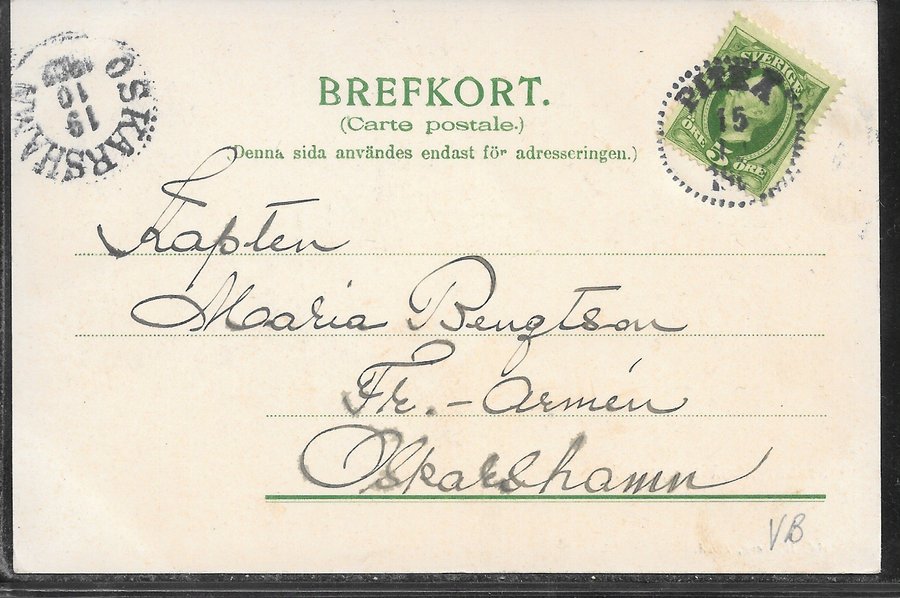 BREFKORT.
(Carte postale.)
(Denna sida användes endast för adresseringen.)
OSKARSHAMN
19
10
PITEÅ
15
SVERIGE
ÖRE 5 ÖRE
Kapten
Maria Bengtson
Fr.-Armén
Oskarshamn
VB